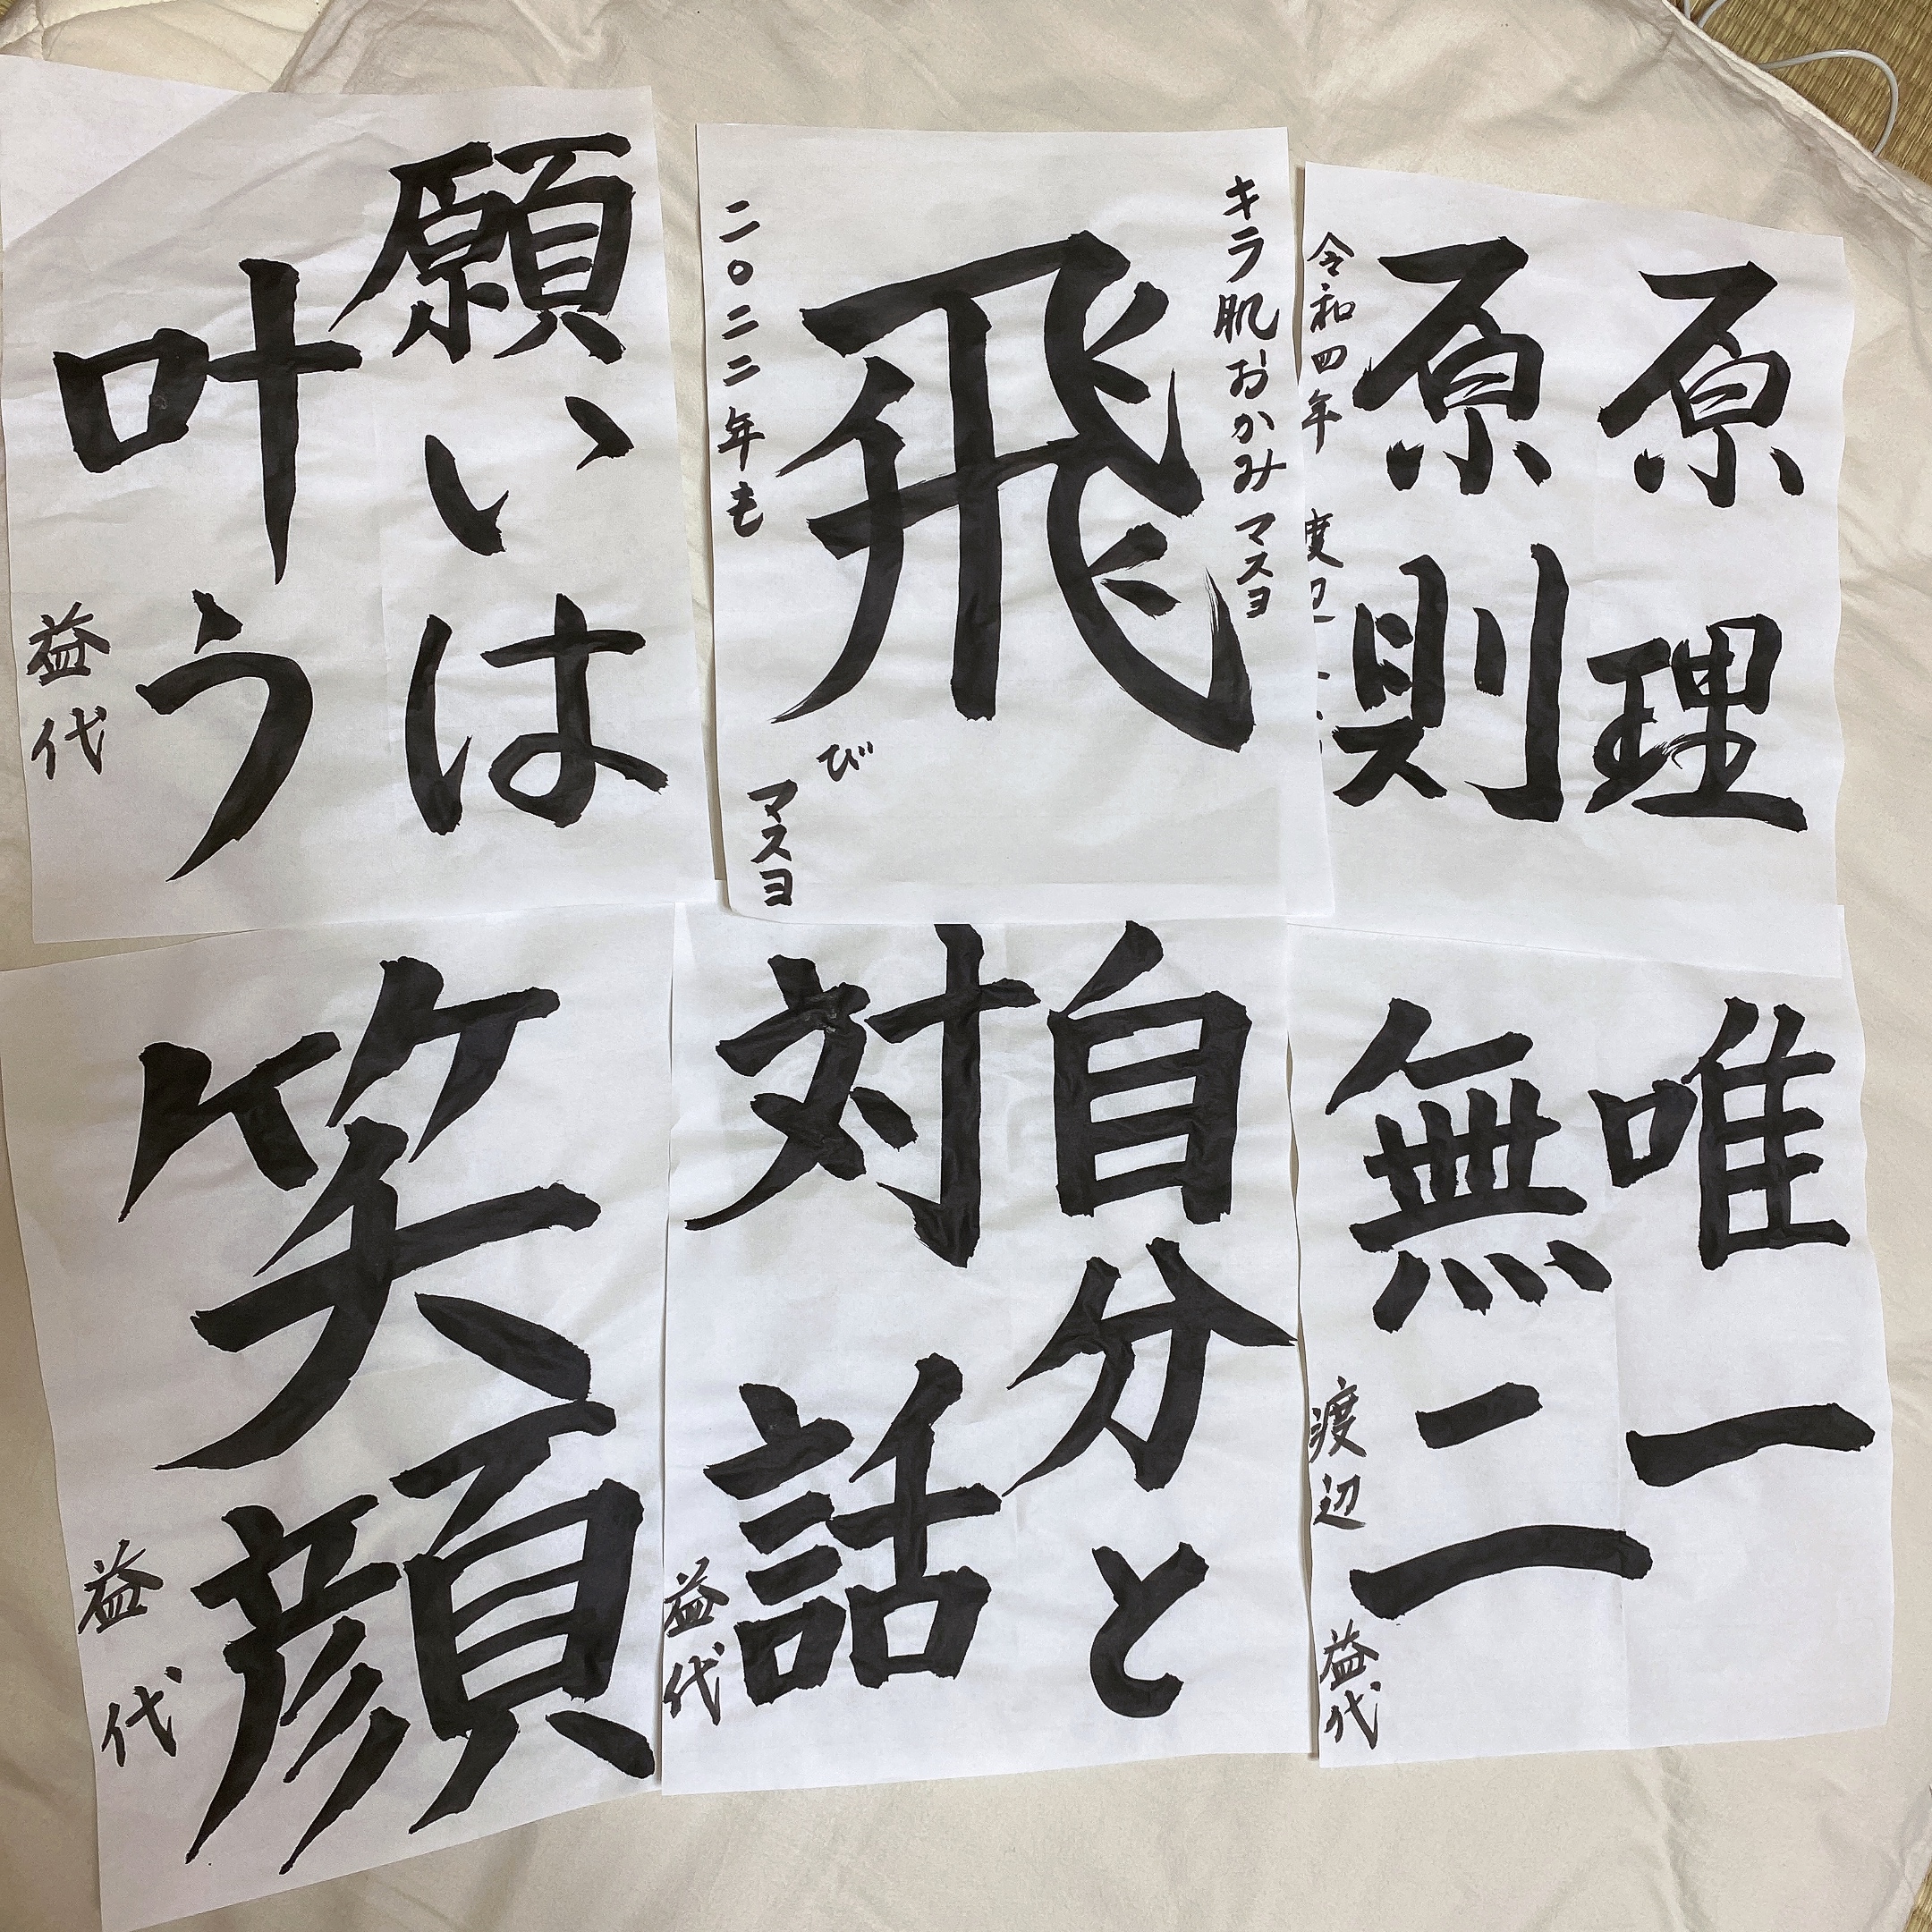 原理
原則
令和四年
キラ肌おかみマスヨ
飛び
二〇二二年も
マスヨ
願いは
叶う
益代
唯一
無二
渡辺 益代
自分と
対話
益代
笑顔
益代